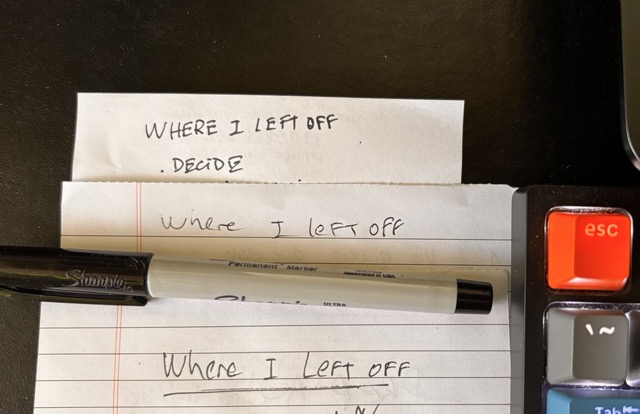 WHERE I LEFT OFF
. DECIDE
Where I left off
Permanent Marker
Sharpie
Sharpie ULTRA
Where I Left off
esc
\ ~
Tab